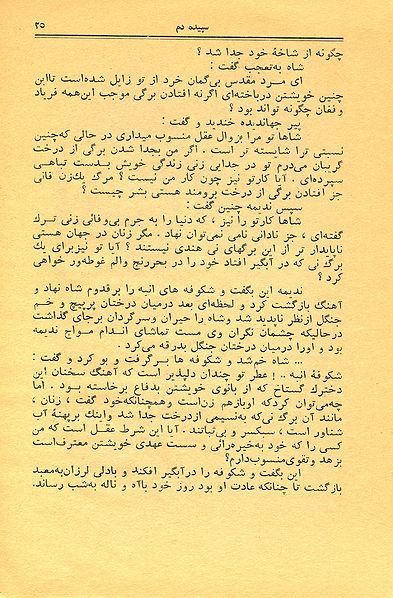 سپیده دم
۲۵
چگونه از شاخهٔ خود جدا شد ؟
شاه به‌تعجب گفت :
ای مرد مقدس بی‌گمان خرد از تو زایل شده‌است تااین
چنین خویشتن درباخته‌ای اگرنه افتادن برگی موجب این‌همه فریاد
و فغان چگونه تواند بود ؟
پیر جهاندیده خندید و گفت :
شاها تو مرا بزوال عقل منسوب میداری در حالی که‌چنین
نسبتی ترا شایسته تر است . اگر من بجدا شدن برگی از درخت
گریبان می‌درم تو در جدایی زنی زندگی خویش بدست تباهی
سپرده‌ای . آیا کارتو نیز چون کار من نیست ؟ مرگ یك‌زن فانی
جز افتادن برگی از درخت برومند هستی بشر چیست ؟
سپس ندیمه چنین گفت :
شاها کارتو را نیز ، که دنیا را به جرم بی‌وفائی زنی ترك
گفته‌ای ، جز نادانی نامی نمی‌توان نهاد . مگر زنان در جهان هستی
ناپایدار تر از این برگهای نی هندی نیستند ؟ آیا تو نیزبرای یك
برگ نی که در آبگیر افتاد خود را در بحررنج والم غوطه‌ور خواهی
کرد ؟
ندیمه این بگفت و شکوفه های انبه را برقدوم شاه نهاد و
آهنگ بازگشت کرد و لحظه‌ای بعد درمیان درختان پرپیچ و خم
جنگل ازنظر ناپدید شد وشاه را حیران وسرگردان برجای گذاشت
درحالیکه چشمان نگران وی مست تماشای اندام مواج ندیمه
بود و اورا درمیان درختان جنگل بدرقه می‌کرد .
... شاه خم‌شد و شکوفه ها برگرفت و بو کرد و گفت :
شکوفهٔ انبه .. ! عطر تو چندان دلپذیر است که آهنگ سخنان این
دخترك گستاخ که از بانوی خویشتن بدفاع برخاسته بود . اما
چه‌می‌توان کردکه اوبازهم زن‌است وهمچنانکه‌خود گفت ، زنان ،
مانند آن برگ نی‌که به‌نسیمی ازدرخت جدا شد واینك برپهنهٔ آب
شناور است ، سبکسر و بی‌ثباتند . آیا این شرط عقل است که من
کسی را که خود به‌خیره‌رائی و سست عهدی خویشتن معترف‌است
بزهد وتقوی‌منسوب‌دارم؟
این بگفت و شکوفه را درآبگیر افکند و بادلی لرزان‌به‌معبد
بازگشت تا چنانکه عادت او بود روز خود باآه و ناله به‌شب رساند.